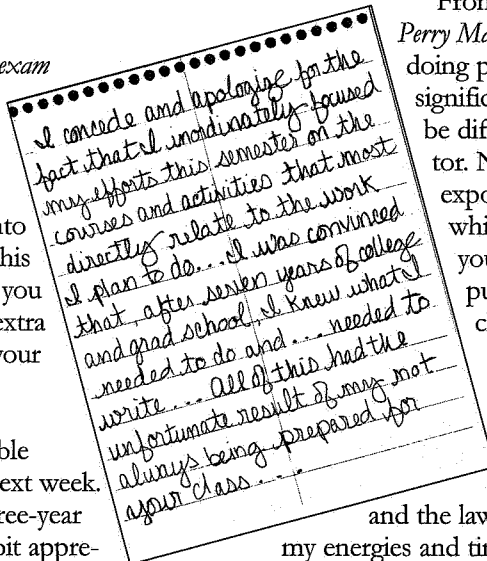 exam
nto
his
you
extra
your
ble
ext week.
ree-year
bit appre-
I concede and apologize for the
fact that I inordinately focused
my efforts this semester on the
courses and activities that most
directly relate to the work
I plan to do... I was convinced
that, after seven years of college
and grad school, I knew what I
needed to do and... needed to
write... All of this had the
unfortunate result of my not
always being prepared for
your class....
From
Perry Ma
doing p
signific
be diff
tor. N
expo
whi
you
pu
c
and the law
my energies and tim